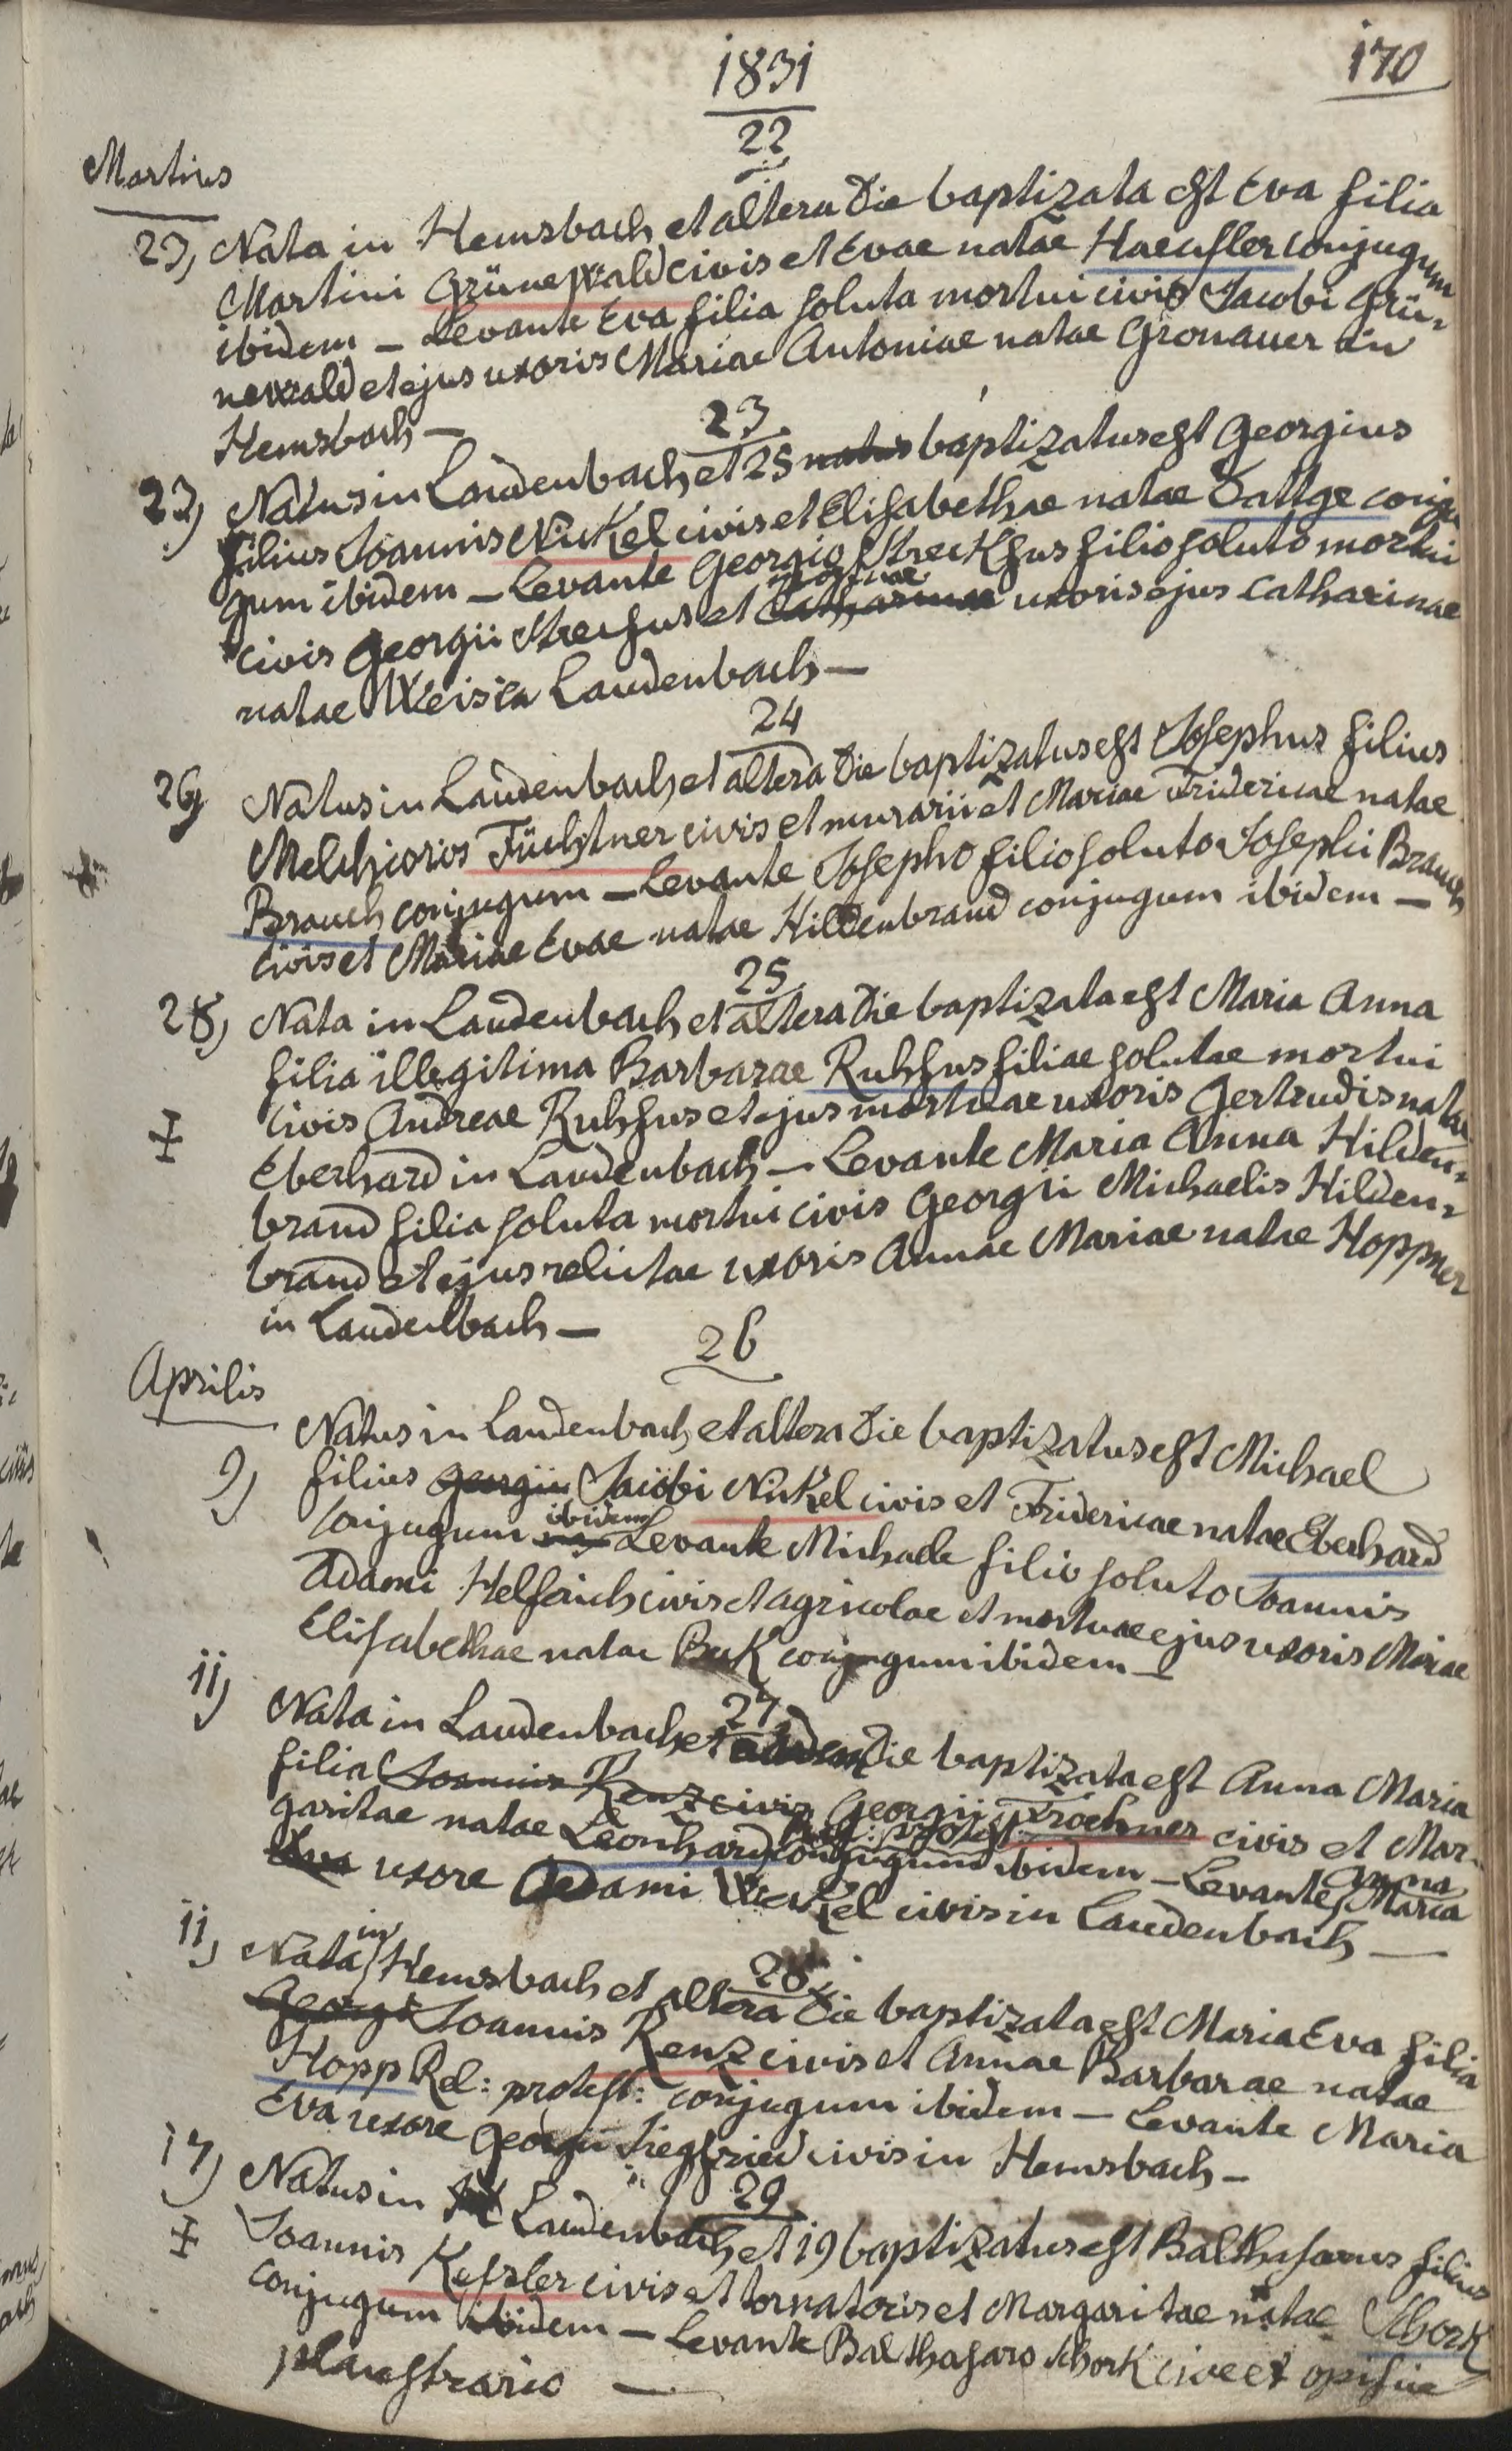 1831
170
22
Martius
23) Nata in Hemsbach et altera die baptizata est Eva filia
Martini Grünewald civis et Evae natae Haeusler conjugum
ibidem – Levante Eva filia soluta mortui civis Jacobi Grü-
newald et ejus uxoris Mariae Antoniae natae Gronauer in
Hemsbach –
23
23) Natus in Laudenbach et 25 natus baptizatus est Georgius
filius Joannis Nickel civis et Elisabethae natae Dattge conju
gum ibidem – Levante Georgio Streckfus filio soluto mortui
mortuae
civis Georgii Strecfus et Catharinae uxoris ejus Catharinae
natae Weis in Laudenbach –
24
26) Natus in Laudenbach et altera die baptizatus est Josephus filius
Melchioris Füchtner civis et murarii et Mariae Fridericae natae
Brauch conjugum – Levante Josepho filio soluto Josephi Brauch
civis et Mariae Evae natae Hildenbrand conjugum ibidem –
25
28) Nata in Laudenbach et altera die baptizata est Maria Anna
filia illegitima Barbarae Ruhfus filiae solutae mortui
civis Andreae Ruhfus et ejus mortuae uxoris Gertrudis natae
Eberhard in Laudenbach – Levante Maria Anna Hilden-
brand filia soluta mortui civis Georgii Michaelis Hilden-
brand et ejus relictae uxoris Annae Mariae natae Hoppner
in Laudenbach –
26
Aprilis
9) Natus in Laudenbach et altera die baptizatus est Michael
filius Georgii Jacobi Nickel civis et Fridericae natae Eberhard
ibidem
conjugum Levante Michaele filio soluto Joannis
Adami Helfrich civis et agricolae et mortuae ejus uxoris Mariae
Elisabethae natae Beck conjugum ibidem –
27
11) Nata in Laudenbach et die baptizata est Anna Maria
filia Joannis Renz civis Georgii Froehner civis et Mar-
Rel: protest:
garitae natae Leonhard conjugum ibidem – Levante Anna Maria
Eva uxore Adami Weckel civis in Laudenbach –
28
11) Nata in Hemsbach et altera die baptizata est Maria Eva filia
Georgi Joannis Renz civis et Annae Barbarae natae
Hopp Rel: protest: conjugum ibidem – Levante Maria
Eva uxore Georgii Siegfried civis in Hemsbach –
29
17) Natus in Laudenbach et 19 baptizatus est Balthasarus filius
Joannis Kessler civis et tornatoris et Margaritae natae Schork
conjugum ibidem – Levante Balthasaro Schork cive et opifice
plaustrario –